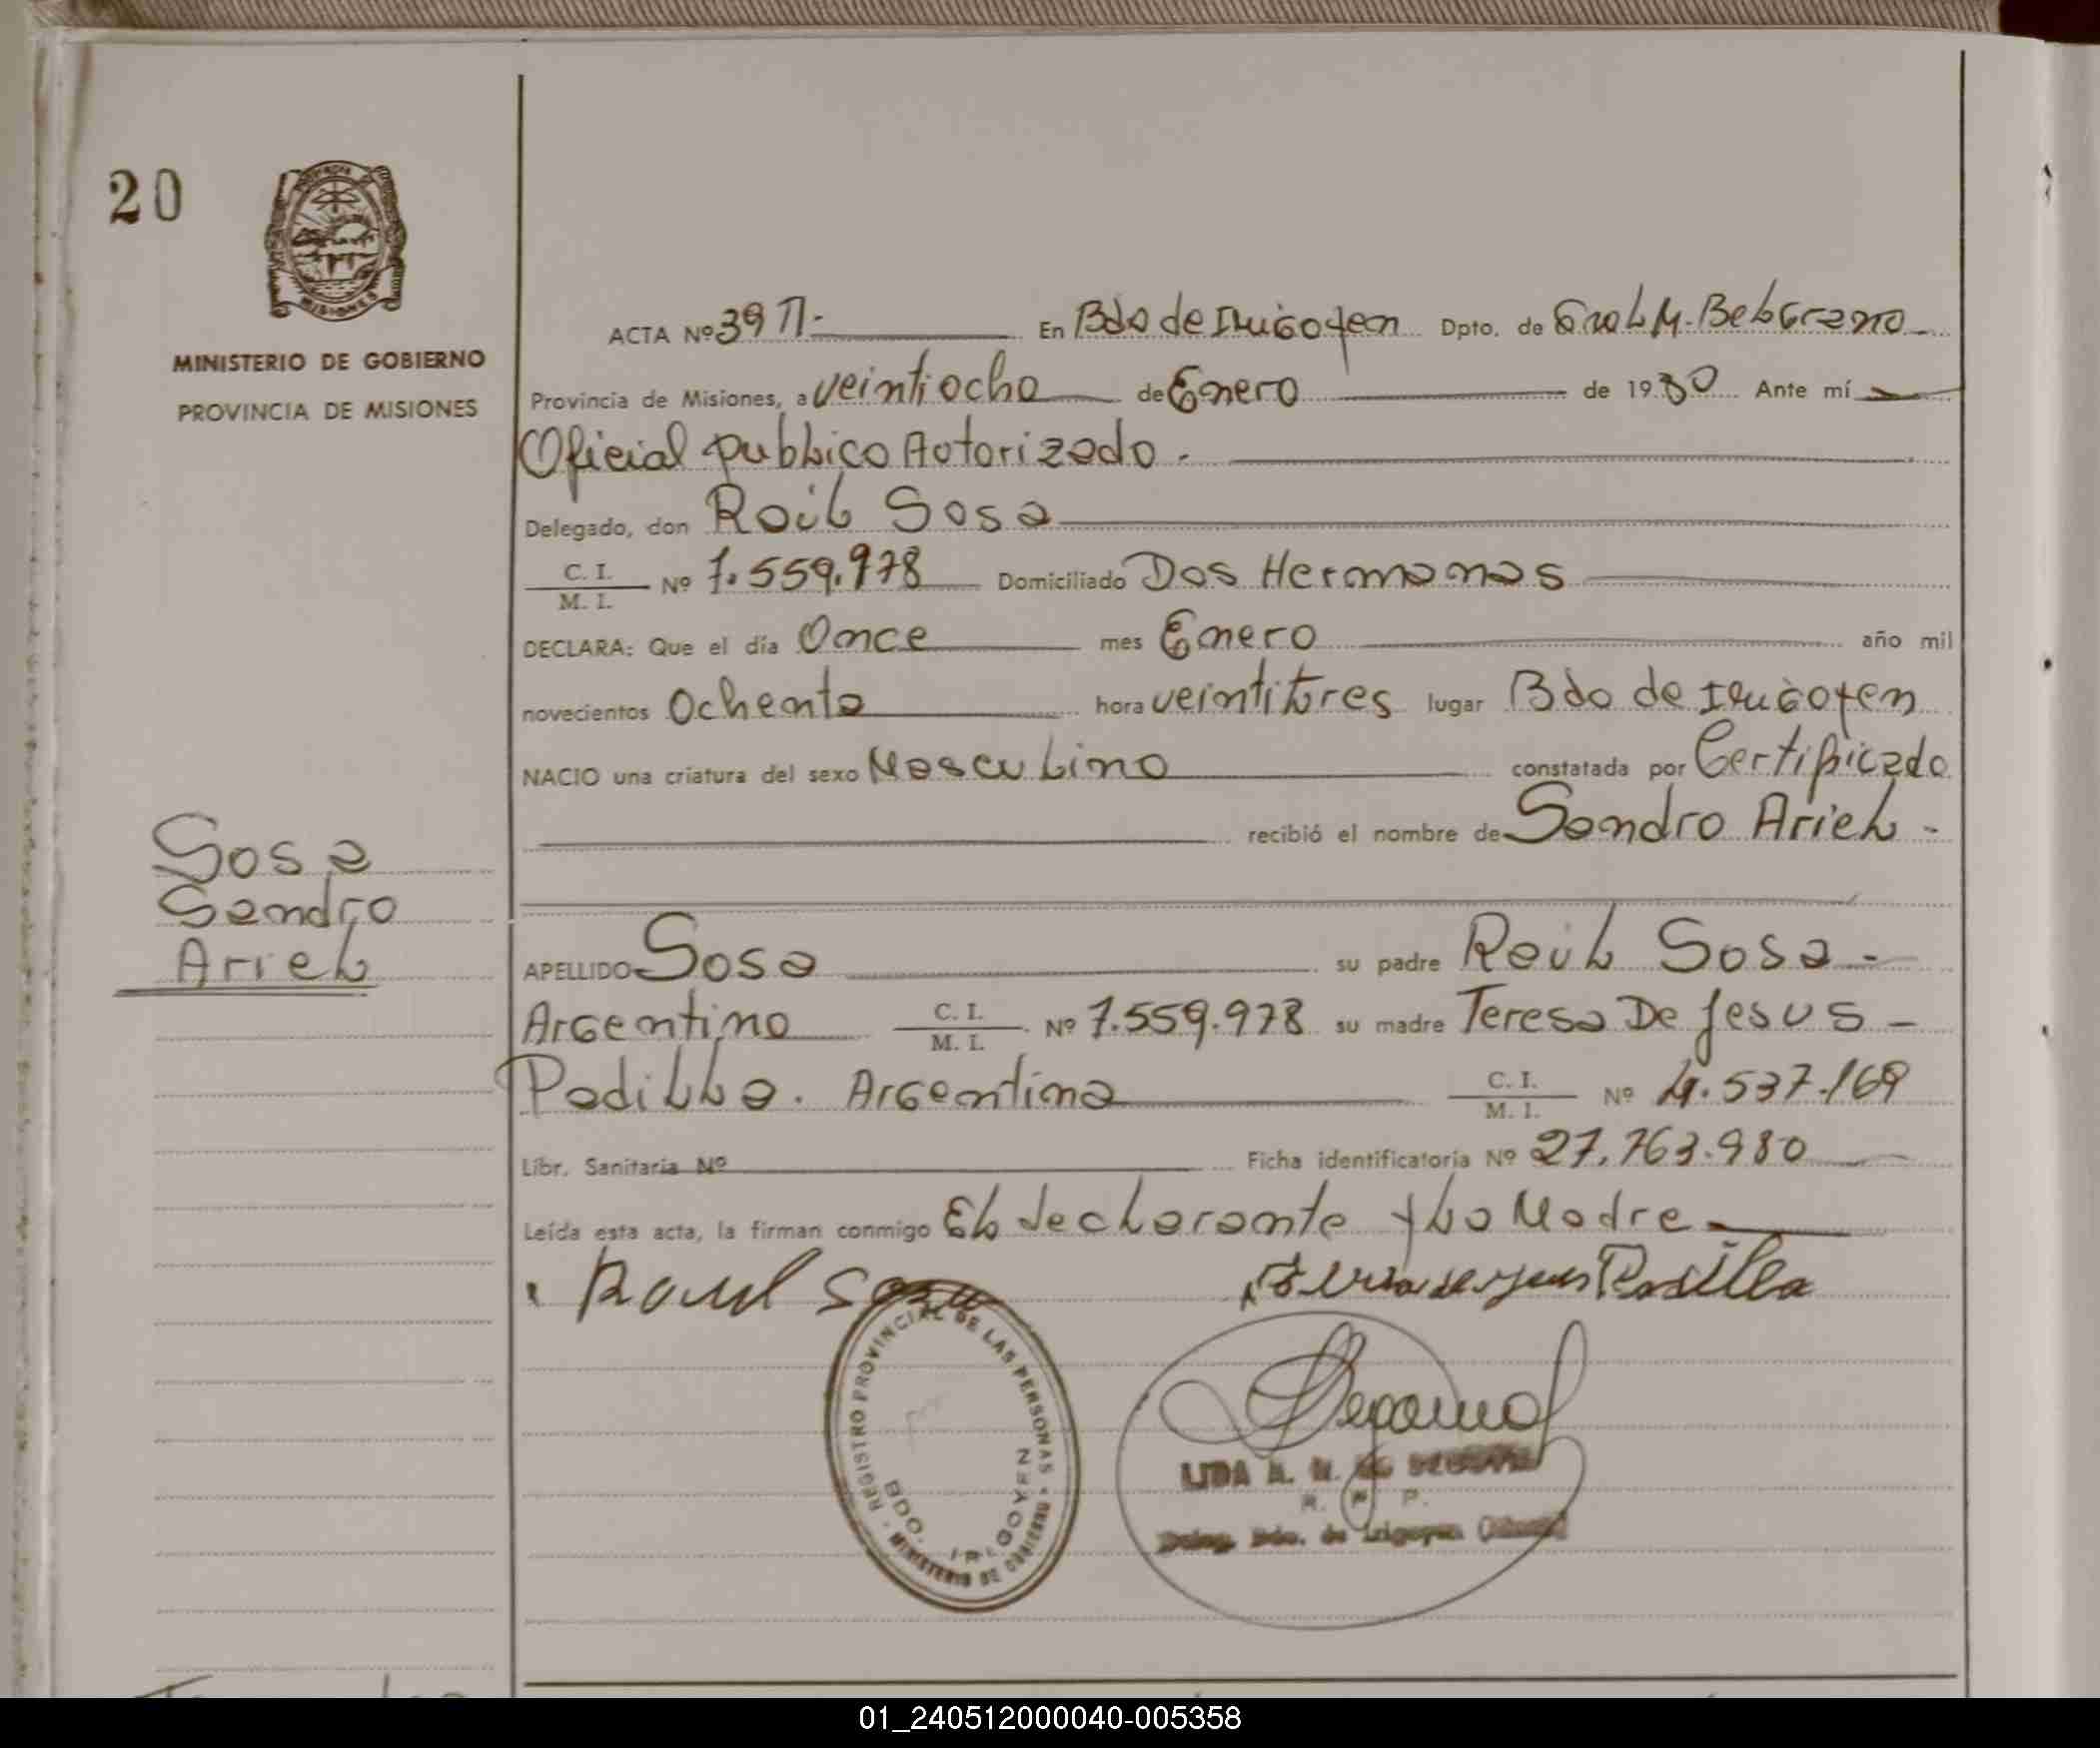 20
MINISTERIO DE GOBIERNO
PROVINCIA DE MISIONES
ACTA Nº 39 TI.- En Bdo de Irigoyen Dpto. de Gral M. Belgrano
Provincia de Misiones, a veintiocho de Enero de 1980 Ante mí
Oficial publico Autorizado.
Delegado, don Raúl Sosa
C. I.
M. I. Nº 7.559.978 Domiciliado Dos Hermanas
DECLARA: Que el día Once mes Enero año mil
novecientos Ochenta hora veintitres lugar Bdo de Irigoyen
NACIO una criatura del sexo Masculino constatada por Certificado
recibió el nombre de Sandro Ariel -
Sosa
Sandro
Ariel
APELLIDO Sosa su padre Raúl Sosa -
Argentino C. I.
M. I. Nº 7.559.978 su madre Teresa De Jesus -
Padilla. Argentina C. I.
M. I. Nº 4.537.169
Libr. Sanitaria Nº Ficha identificatoria Nº 27.763.980
Leída esta acta, la firman conmigo El declarante y La Madre
Raul Sosa Padilla
REGISTRO PROVINCIAL DE LAS PERSONAS
MINISTERIO DE
BDO. IRIGOYEN
LIDA
R. P. P.
Deleg. Bdo. de Irigoyen
01_240512000040-005358